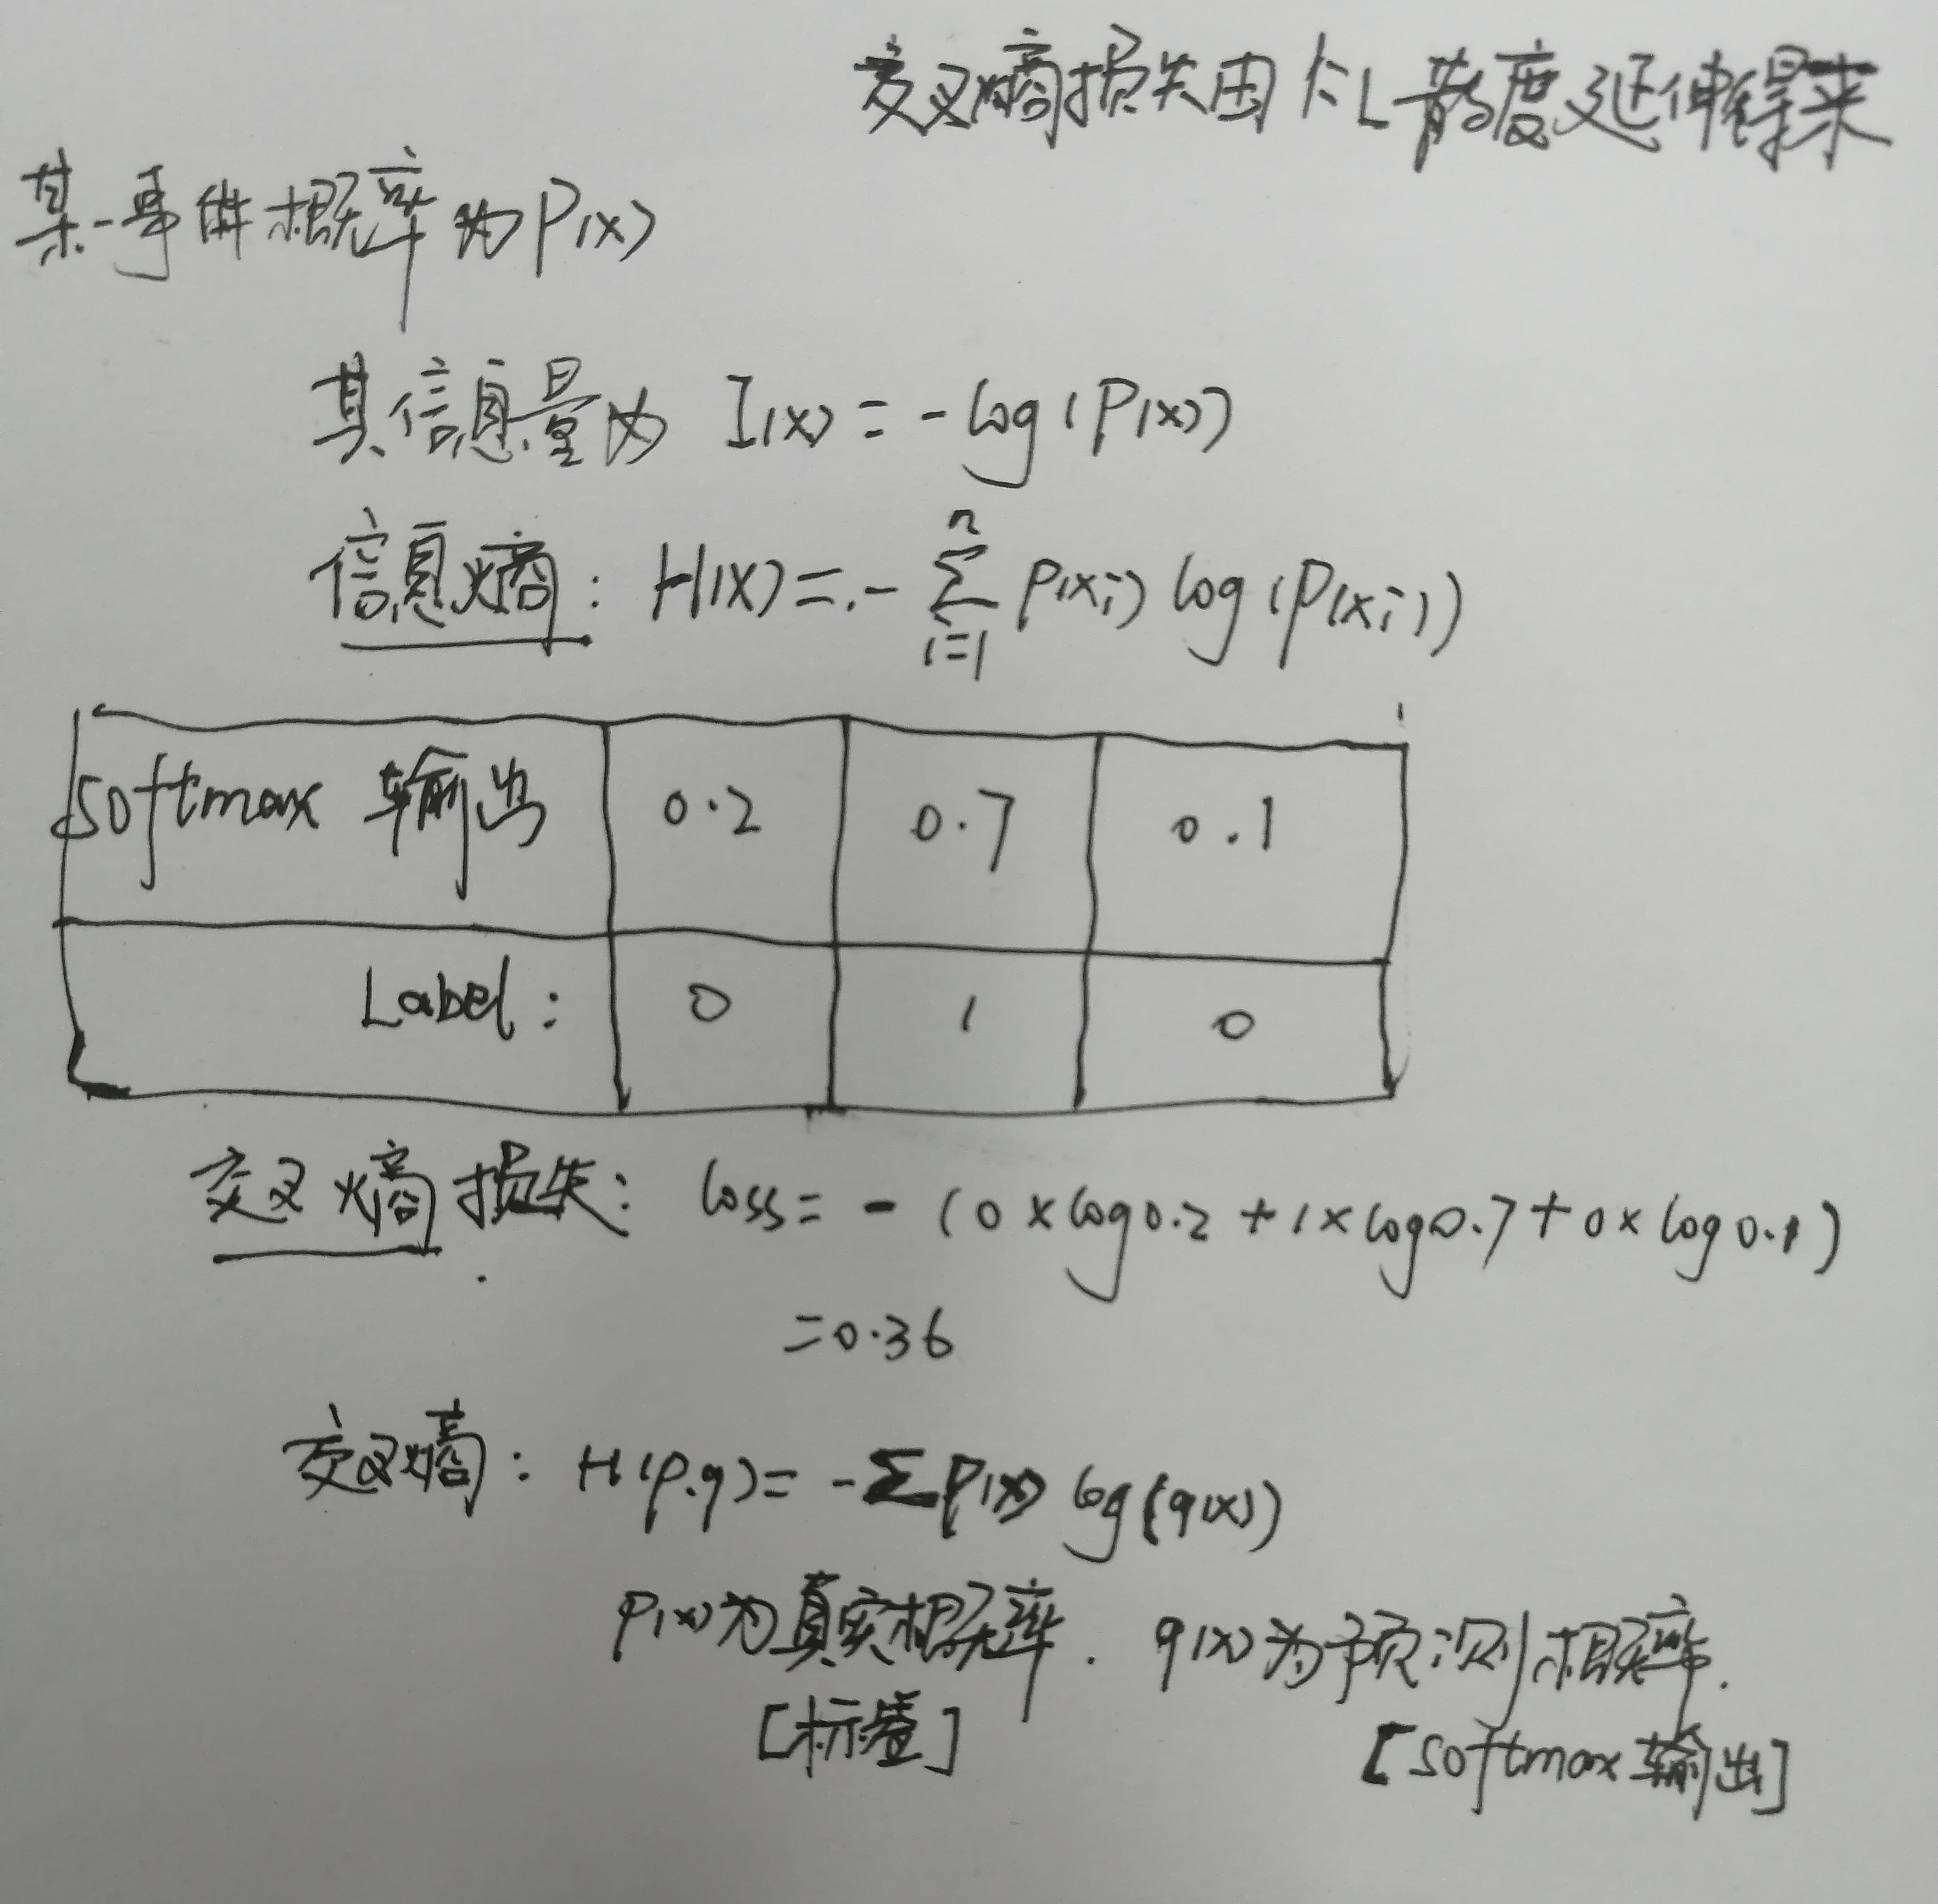 交叉熵损失由KL散度延伸得来
某一事件概率为P(x)
其信息量为 I(x) = -log(P(x))
信息熵: H(X) = - ∑ⁿᵢ₌₁ P(xi) log(P(xi))
softmax 输出 0.2 0.7 0.1
Label: 0 1 0
交叉熵损失: loss = - (0×log0.2 + 1×log0.7 + 0×log0.1)
=0.36
交叉熵: H(p.q) = -∑P(x) log(q(x))
P(x)为真实概率. q(x)为预测概率.
[标签] [softmax输出]